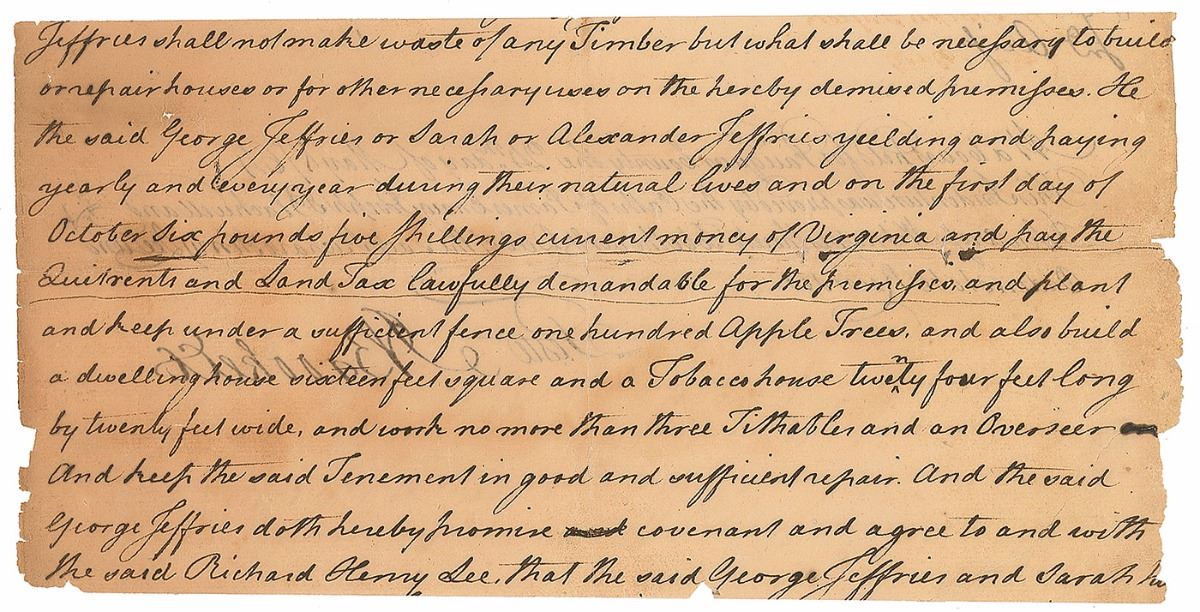 Jeffries shall not make waste of any Timber but what shall be necessary to build
or repair houses or for other necessary uses on the hereby demised premisses. He
the said George Jeffries or Sarah or Alexander Jeffries yielding and paying
yearly and every year during their natural lives and on the first day of
October Six pounds five shillings current money of Virginia and pay the
Quitrents and Land Tax lawfully demandable for the premisses, and plant
and keep under a sufficient fence one hundred Apple Trees, and also build
a dwelling house sixteen feet square and a Tobacco house twenty four feet long
by twenty feet wide, and work no more than three Tithables and an Overseer
And keep the said Tenement in good and sufficient repair. And the said
George Jeffries doth hereby promise covenant and agree to and with
the said Richard Henry Lee, that the said George Jeffries and Sarah